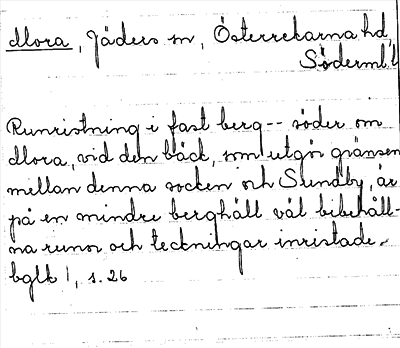 Mora, Jäders sn, Österrekarna hd,
Söderml:d
Runristning i fast berg -- söder om
Mora, vid den bäck, som utgör gränsen
millan denna socken och Sundby, är
på en mindre berghäll väl bibehåll-
na runor och teckningar inristade.
bglb 1, s. 26